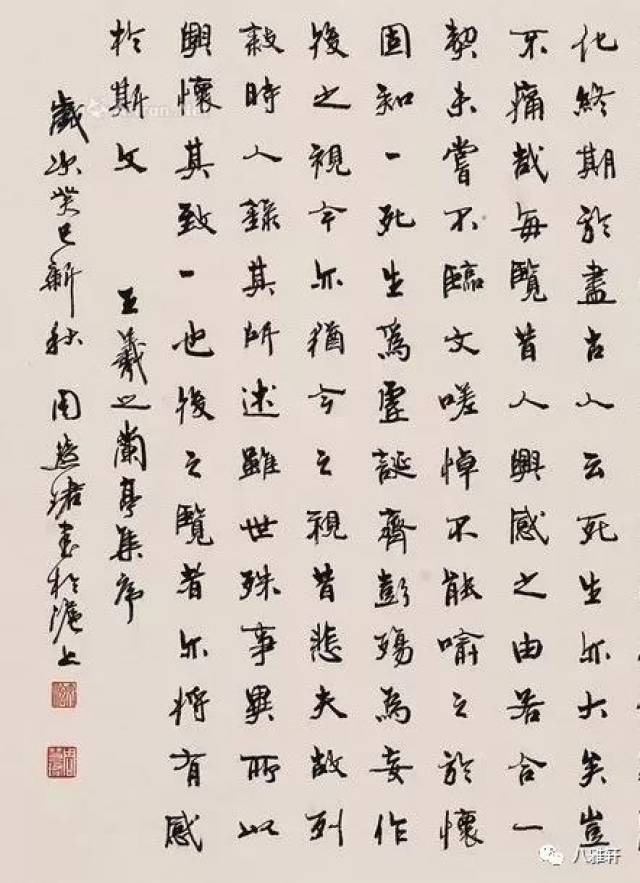 化終期於盡古人云死生亦大矣豈
不痛哉每覽昔人興感之由若合一
契未嘗不臨文嗟悼不能喻之於懷
固知一死生為虛誕齊彭殤為妄作
後之視今亦猶今之視昔悲夫故列
敘時人錄其所述雖世殊事異所以
興懷其致一也後之覽者亦將有感
於斯文 王羲之蘭亭集序
歲次癸巳新秋 周慧珺書於滬上
八雅轩